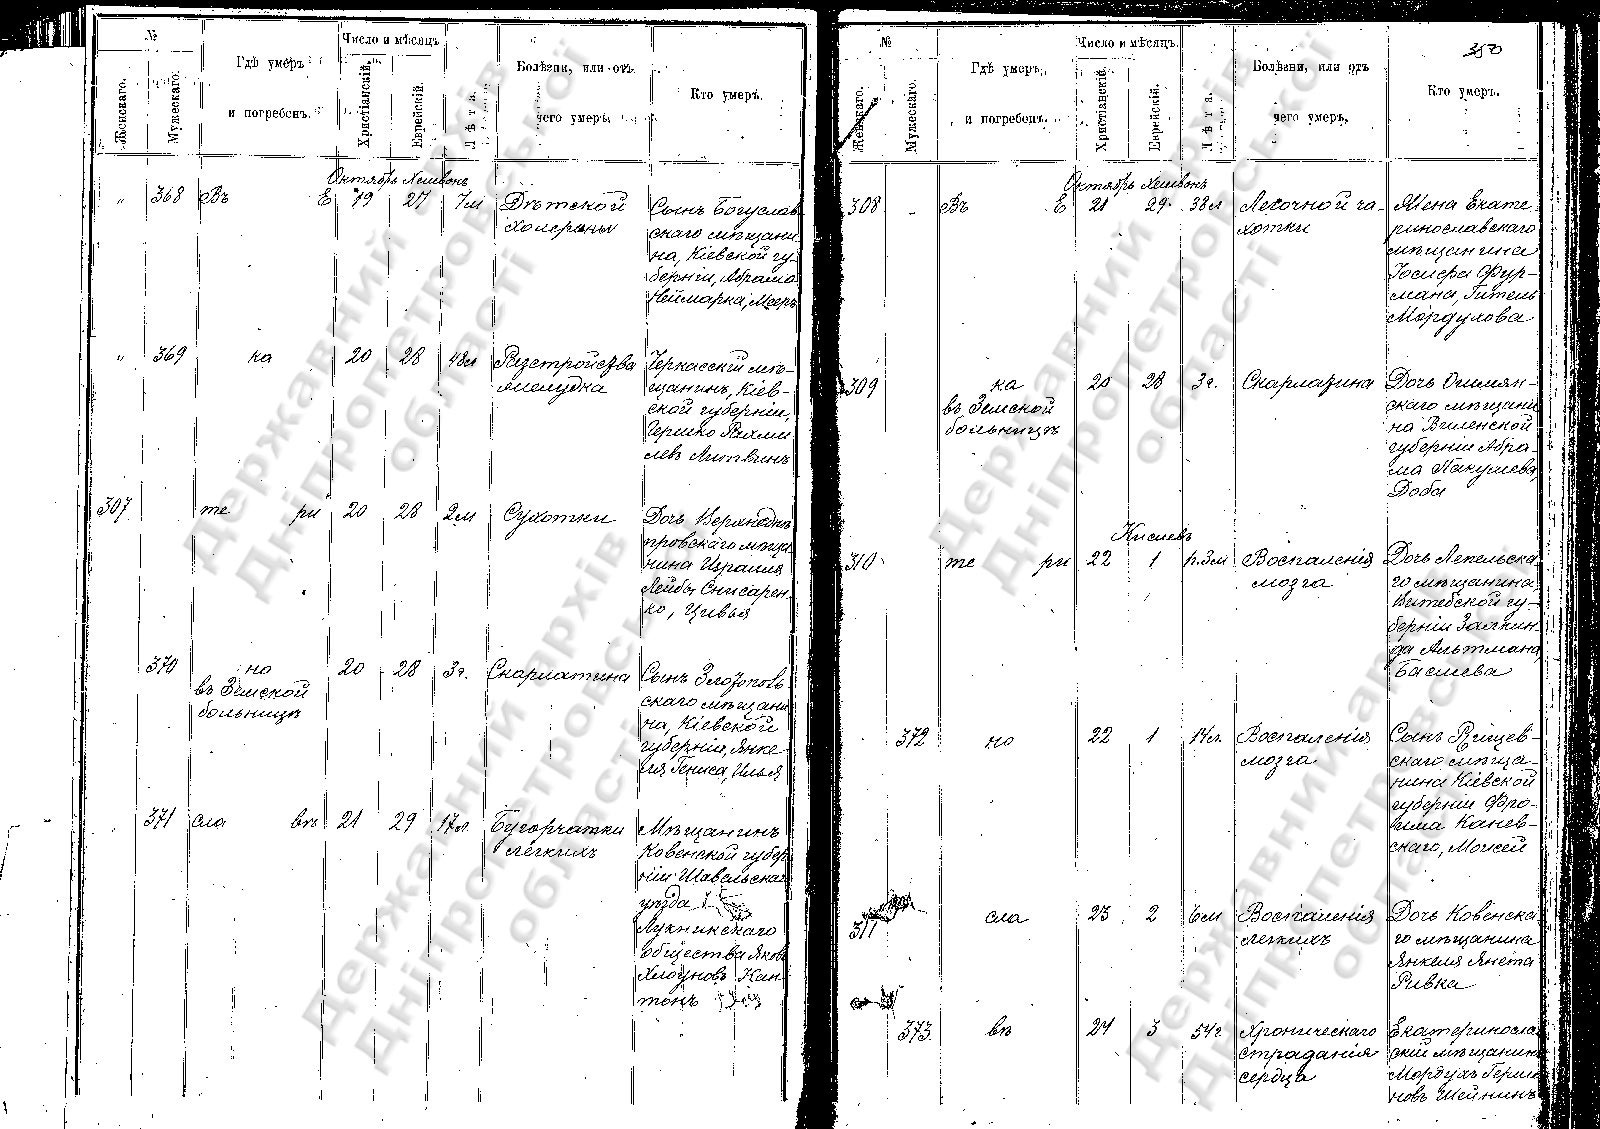 №
Женскаго.
Мужескаго.
Гдѣ умеръ
и погребенъ.
Число и мѣсяцъ
Христіанскій.
Еврейскій.
Лѣта.
Болѣзни, или отъ
чего умеръ.
Кто умеръ.
Октябрь Хешвонъ
" 368 Въ Е 19 27 7м Дѣтской
холерины
Сынъ Богуслав
скаго мѣщани
на, Кіевской гу-
берніи, Абрама
Неймарка, Мееръ
" 369 ка 20 28 48л Разстройства
желудка
Черкасскій мѣ-
щанинъ, Кіев-
ской губерніи,
Гершко Рахми
левъ Литвинъ
307 те ри 20 28 2м Сухотки
Дочь Верхнеднѣ
провскаго мѣща
нина Израиля
Лейбы Снисарен-
ко, Цивья
370 но 20 28 3г. Скарлатина
въ Земской
больницѣ
Сынъ Златополь
скаго мѣщани
на, Кіевской
губерніи, Янке-
ля Гениса, Илья
371 сла въ 21 29 17л. Бугорчатки
легкихъ
Мѣщанинъ
Ковенской губер
ніи Шавельскаг
уѣзда
Лукникскаго
общества Яковъ
Хлоуновъ Кан-
тонъ
350
№
Женскаго.
Мужескаго.
Гдѣ умеръ,
и погребенъ.
Число и мѣсяцъ.
Христіанскій.
Еврейскій.
Лѣта.
Болѣзни, или отъ
чего умеръ,
Кто умеръ.
Октябрь Хешвонъ
308 Въ Е 21 29 38л Легочной ча-
хотки
Жена Екате-
ринославскаго
мѣщанина
Іосифа Фур-
мана, Гитель
Мордухова
309 ка 20 28 3г. Скарлатина
въ Земской
больницѣ
Дочь Ошмян-
скаго мѣщани
на Виленской
губерніи Абра-
ма Пакушева,
Доба
Кислевъ
310 те ри 22 1 п.3м Воспаленія
мозга
Дочь Лепельска
го мѣщанина,
Витебской гу-
берніи Залкин-
да Альтмана,
Басшева
372 но 22 1 14л. Воспаленія
мозга
Сынъ Ржищев-
скаго мѣща-
нина Кіевской
губерніи Фро-
има Канев-
скаго, Мойсей
311 сла 23 2 6м Воспаленія
легкихъ
Дочь Ковенска
го мѣщанина
Янкеля Янета
Ривка
373. въ 24 3 54г. Хроническаго
страданія
сердца
Екатеринослав
скій мѣщанинъ
Мордухъ Герш
новъ Шейнинъ
Державний архів
Дніпропетровської
області
Державний архів
Дніпропетровської
області
Державний архів
Дніпропетровської
області
Державний архів
Дніпропетровської
області